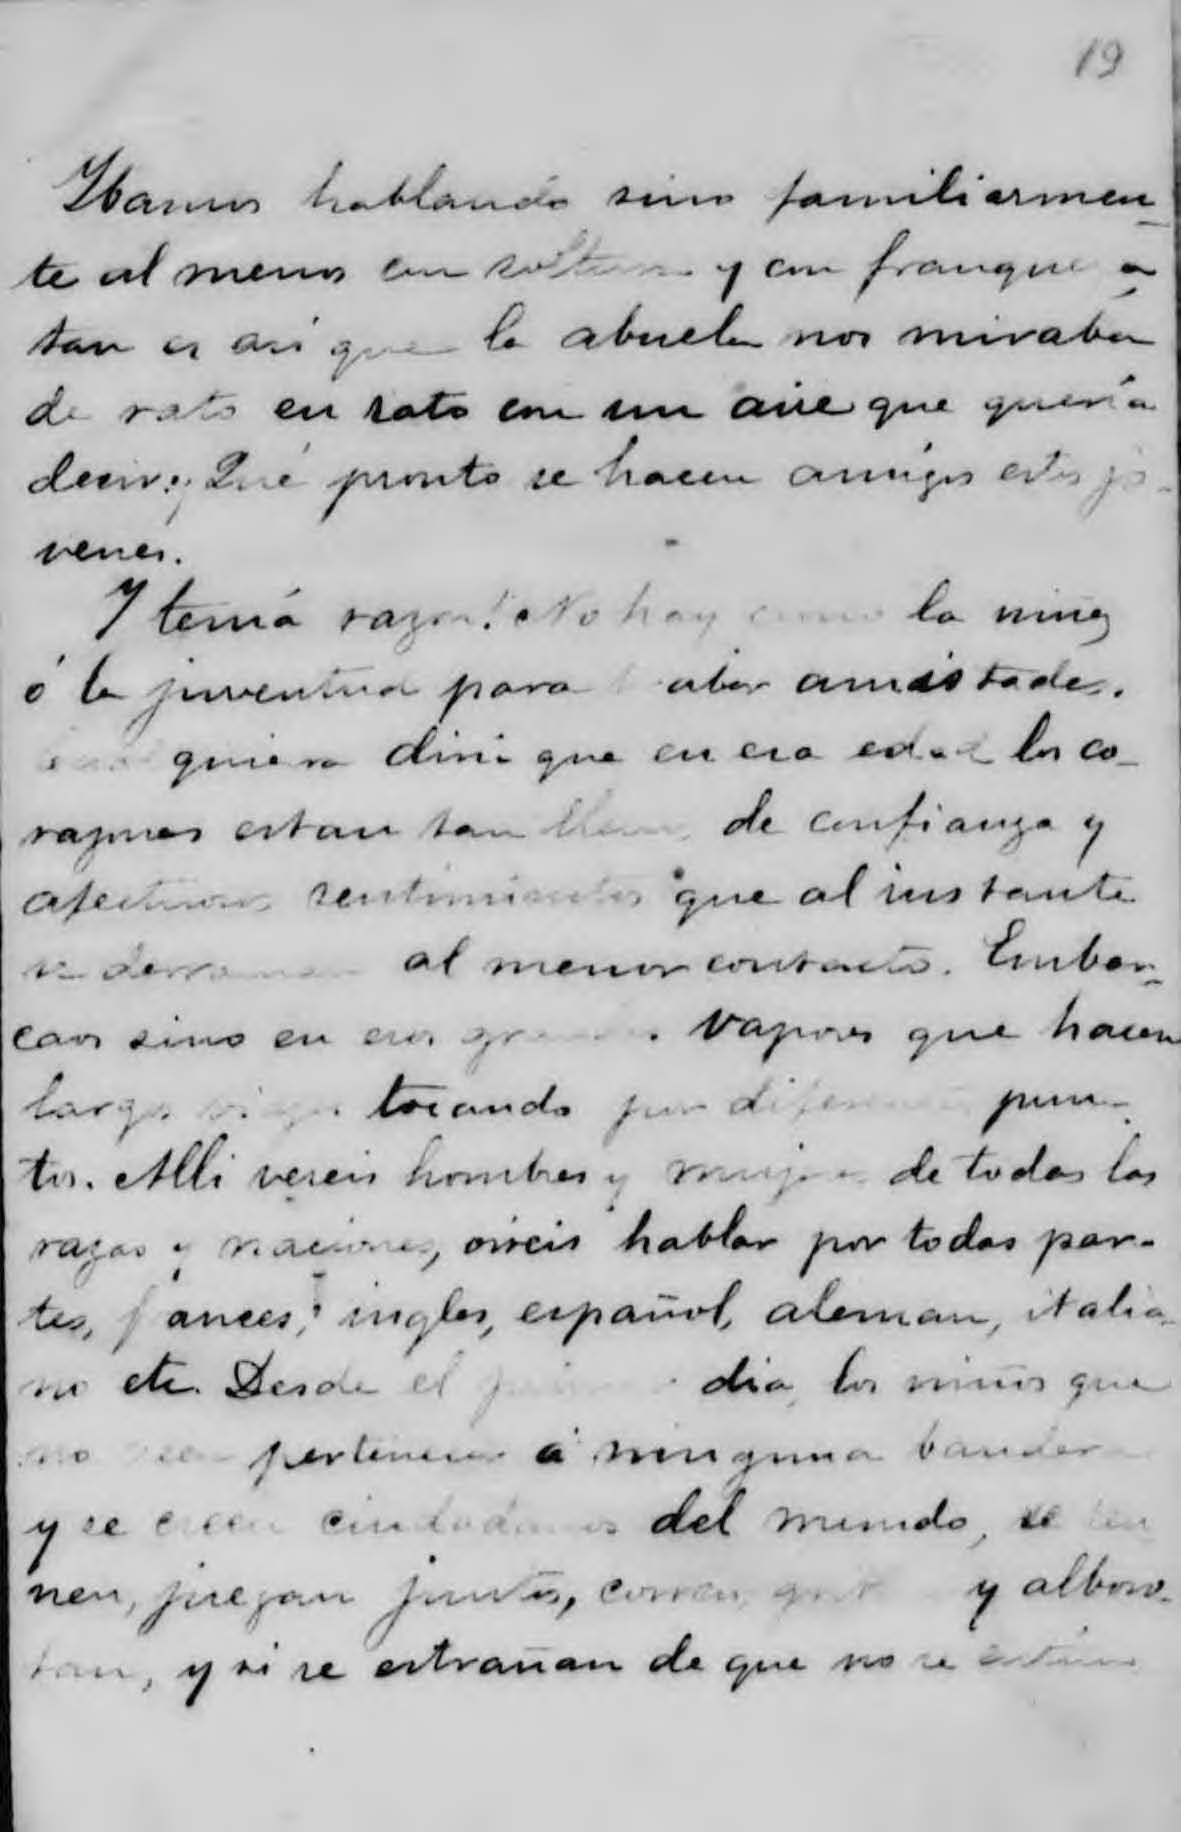 19
Ibamos hablando sino familiarmen-
te al menos con soltura y con franqueza
tan es asi que la abuela nos miraba
de rato en rato con un aire que queria
decir: ¡Qué pronto se hacen amigos estos jo-
venes.
Y tenía razon! No hay como la niñez
ó la juventud para trabar amistades.
quiera diria que en esa edad los co-
razones estan tan llenos de confianza y
afectuosos sentimientos que al instante
se derraman al menor contacto. Embar-
caos sino en esos grandes vapores que hacen
largos viajes tocando por diferentes pun-
tos. Alli vereis hombres y mujeres de todas las
razas y naciones, oireis hablar por todas par-
tes, frances, ingles, español, aleman, italia-
no etc. Desde el primer dia, los niños que
no creen pertenecer á ninguna bandera
y se creen ciudadanos del mundo, se
nen, juegan juntos, corren, gritan y alboro-
tan, y si se estrañan de que no se